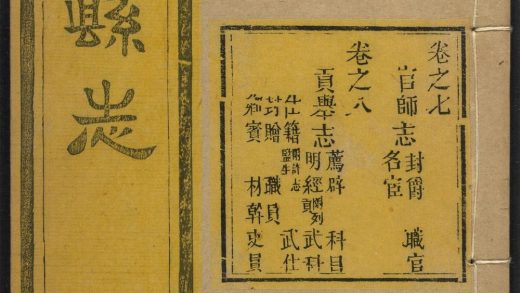 卷之七
官師志 封爵 職官
名宦
卷之八
貢舉志 薦辟 科目
明經 武科
仕籍 武仕
封贈 職員
賓 材幹 吏員
縣志